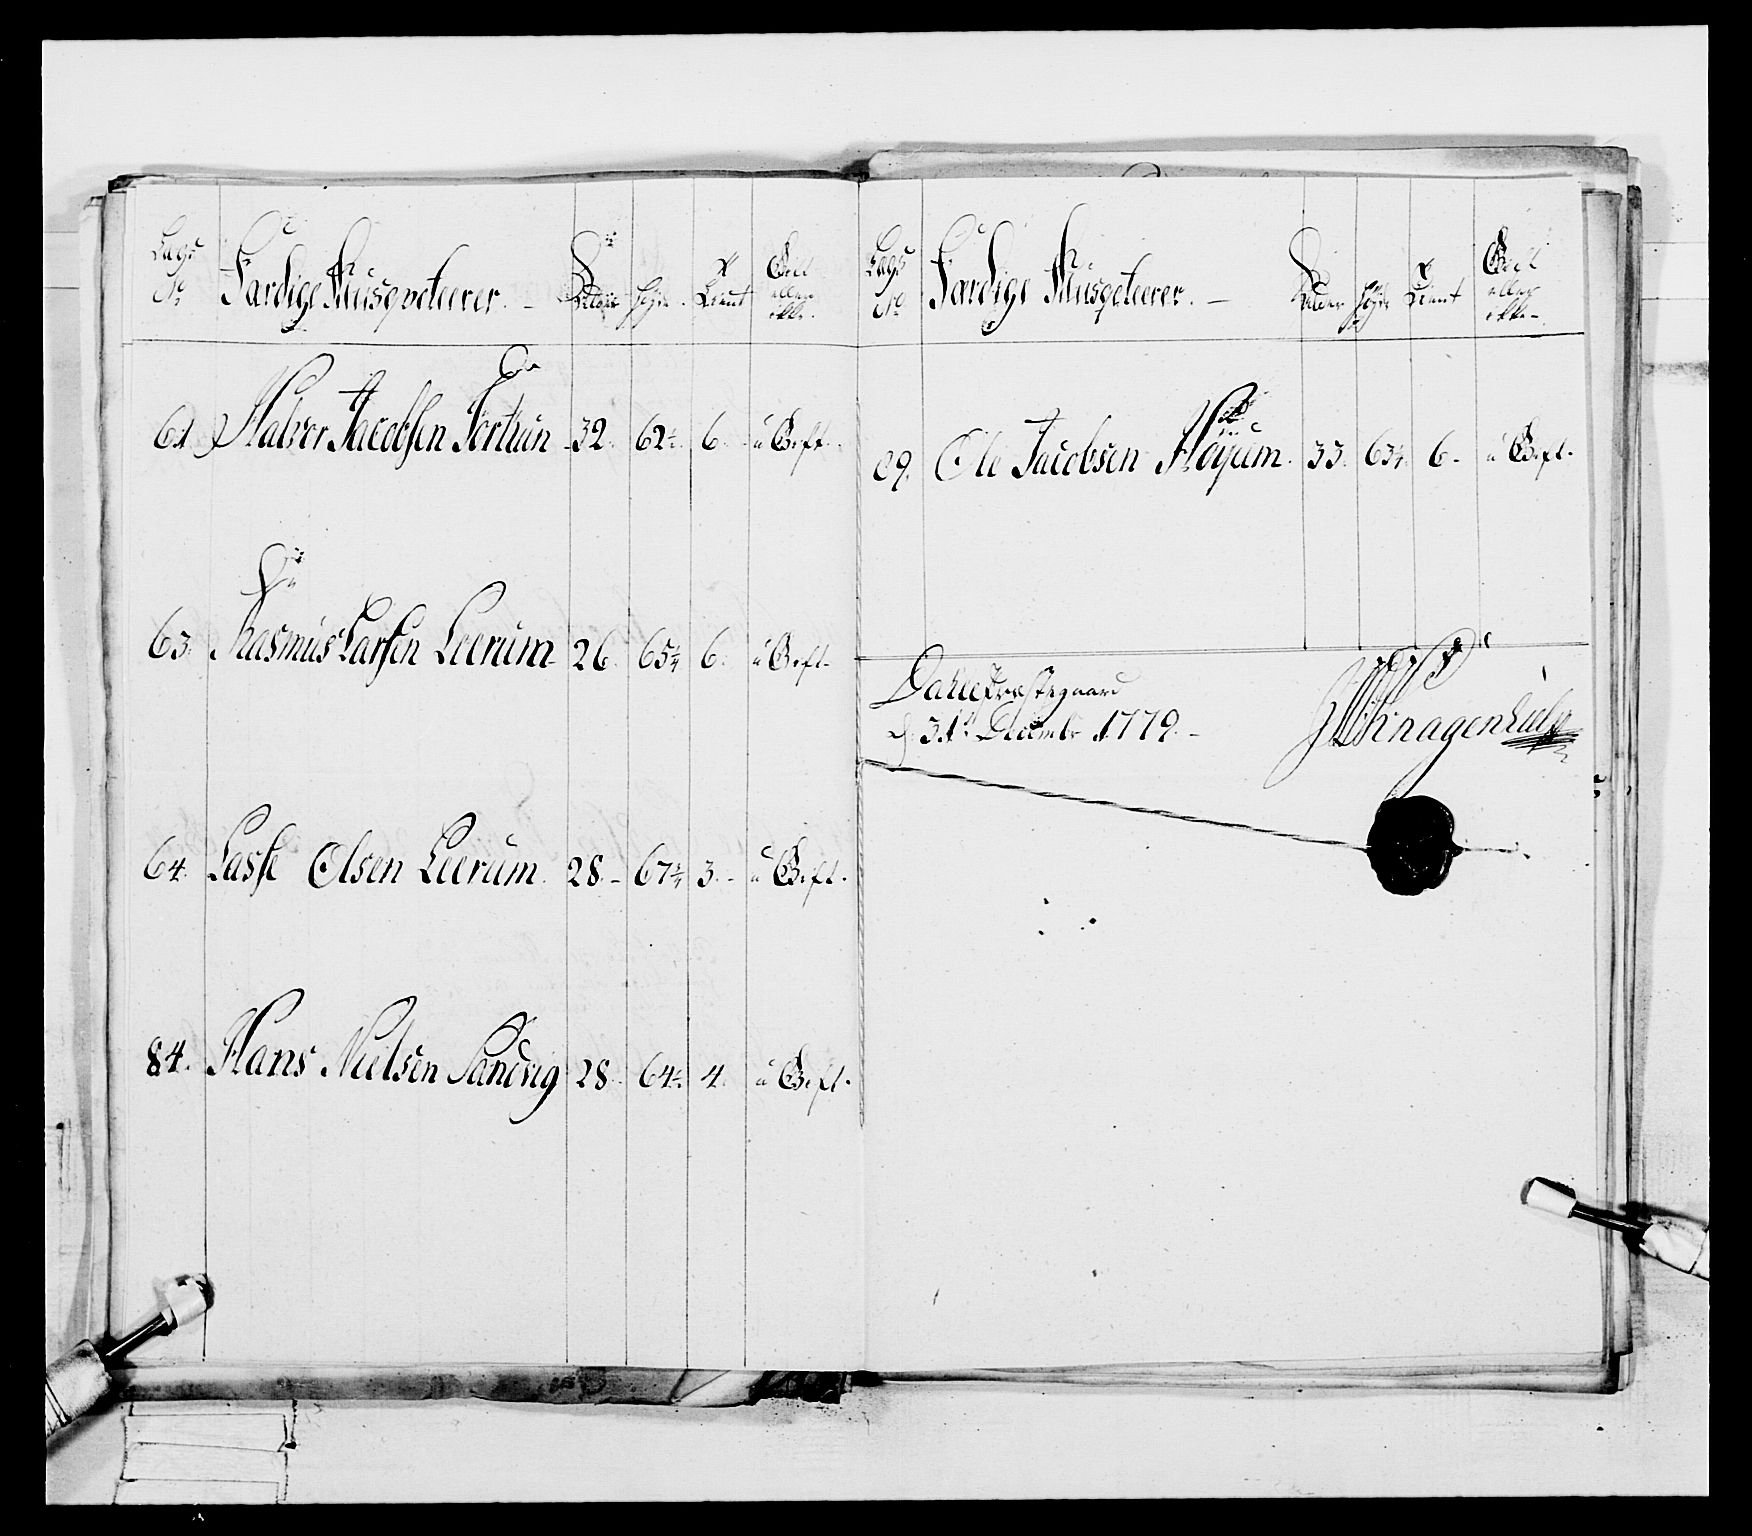 Lægs No Færdige Musqveteerer. Alder Høyde Tient Gift eller ikke.
61. Halvor Jacobsen Fortun 32. 62½. 6. u Gift.
63. Rasmus Larsen Leerum 26. 65¼ 6. u Gift.
64. Lasse Olsen Leerum. 28. 67¼ 3. u Gift.
84. Hans Nielsen Sandvig 28. 64½. 4. u Gift.
Lægs No Færdige Musqveteerer. Alder Høyde Tient Gift eller ikke
89. Ole Jacobsen Høyum. 33. 63¼. 6. u Gift.
Dahle Præstegaard
d. 31te Decembr 1779.